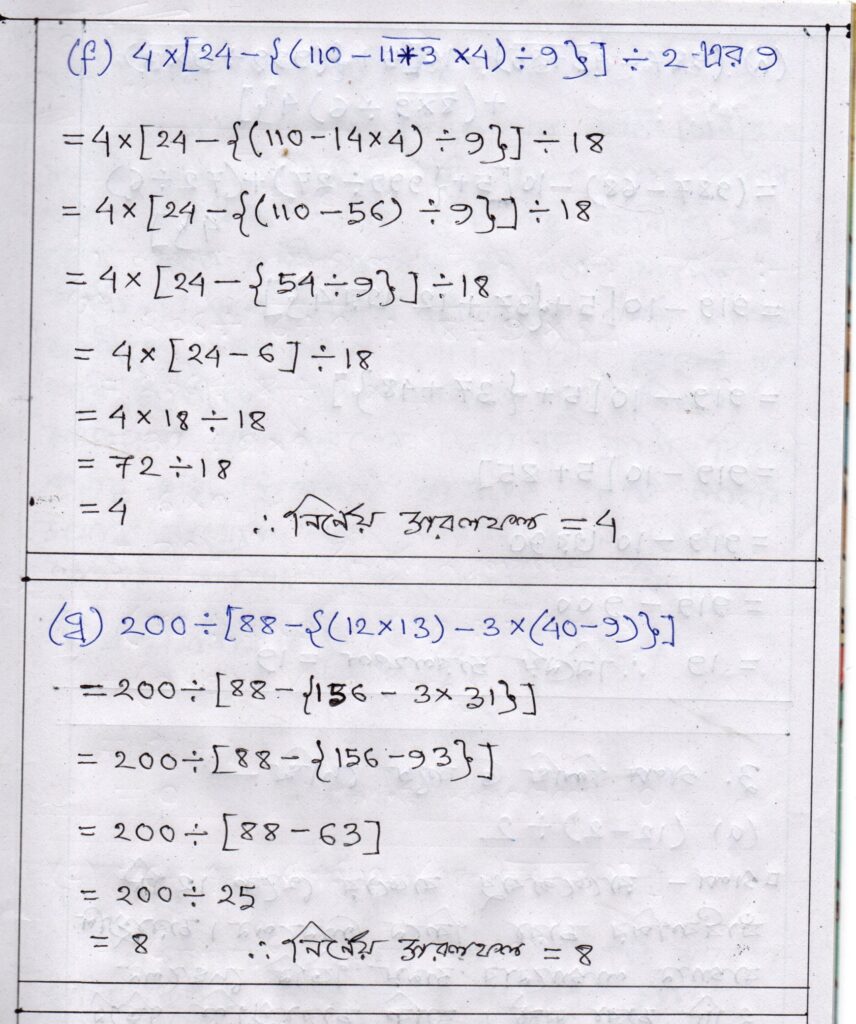 (f) 4×[24-{(110-11+3 ×4)÷9}]÷2-এর 9
=4×[24-{(110-14×4)÷9}]÷18
= 4×[24-{(110-56) ÷9}]÷18
= 4×[24-{54÷9}]÷18
= 4×[24-6]÷18
= 4×18÷18
= 72÷18
=4 ∴ নির্ণেয় সরলফল =4
(g) 200÷[88-{(12×13)-3×(40-9)}]
=200÷[88-{156-3×31}]
= 200÷[88-{156-93}]
= 200÷[88-63]
= 200÷25
= 8 ∴ নির্ণেয় সরলফল = 8